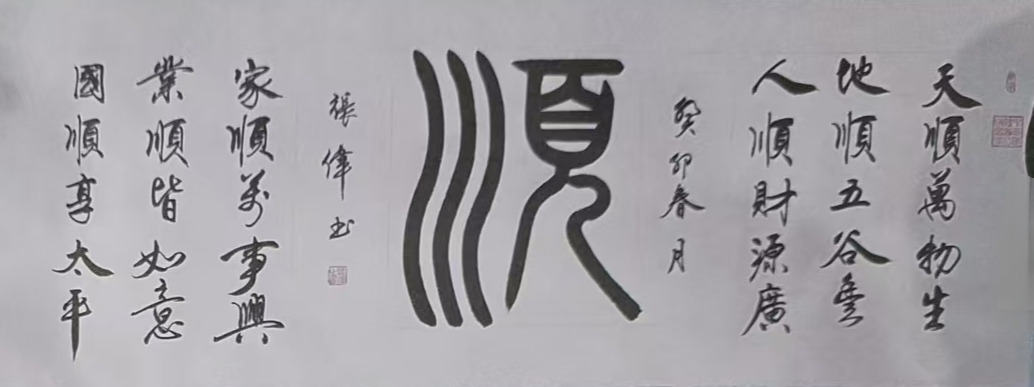 天順萬物生
地順五谷豐
人順財源廣
癸卯春月
順
張偉书
家順万事興
業順皆如意
國順享太平